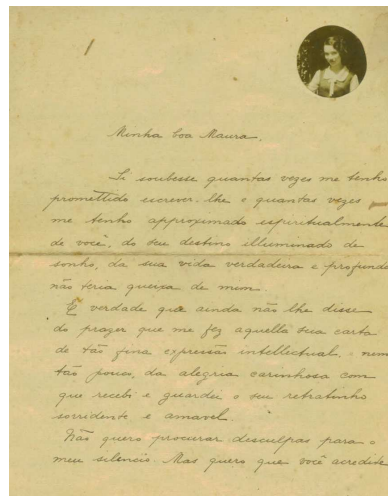 Minha boa Maura.
Si soubesse quantas vezes me tenho
promettido escrever-lhe e quantas vezes
me tenho approximado espiritualmente
de você, do seu destino illuminado de
sonho, da sua vida verdadeira e profunda
não teria queixa de mim.
É verdade que ainda não lhe disse
do prazer que me fez aquella sua carta
de tão fina expressão intellectual, nem
tão pouco, da alegria carinhosa com
que recebi e guardei o seu retratinho
sorridente e amavel.
Não quero procurar desculpas para o
meu silencio. Mas quero que você acredite